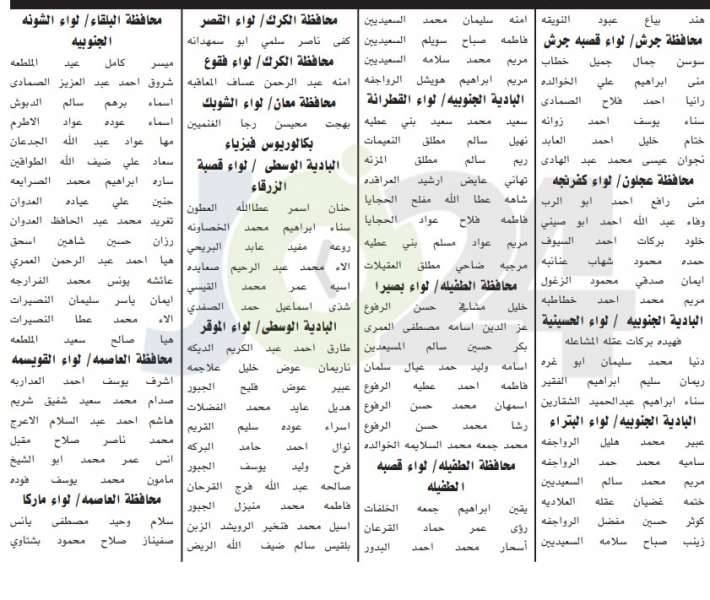 هند بياع عبود النويقه
محافظة جرش/ لواء قصبه جرش
سوسن جمال جميل خطاب
منى ابراهيم علي الخوالده
رانيا احمد فلاح الصمادى
سناء يوسف احمد زوانه
ختام خليل احمد العابد
نجوان عيسى محمد عبد الهادى
محافظة عجلون/ لواء كفرنجه
منى رافع احمد ابو الرب
وفاء عبد الله احمد ابو صيني
خلود بركات احمد السيوف
حمده محمود شهاب عنانبه
ايمان صدقي محمود الزغول
مريم محمد احمد خطاطبه
البادية الجنوبيه / لواء الحسينية
فهيده بركات عقله المشاعله
دنيا محمد سليمان ابو غره
ريمان سليم ابراهيم الفقير
سناء ابراهيم عبدالحميد الشقارين
البادية الجنوبيه/ لواء البتراء
عبير محمد هليل الرواجفه
ساميه محمد حمد الرواجفه
مريم محمد سالم السعيديين
ختمه غضيان عقله العلاديه
كوثر حسين مفضل الرواجفه
زينب صباح سلامه السعيديين
امنه سليمان محمد السعيديين
فاطمه صباح سويلم السعيديين
مريم محمد سلامه السعيديين
مريم ابراهيم هويشل الرواجفه
البادية الجنوبيه/ لواء القطرانة
سعيد محمد سعيد بني عطيه
نهيل سالم مطلق النعيمات
ريم سالم مطلق المزنه
تهاني عايض ارشيد العراقده
شاهه عطا الله مفلح الحجايا
فاطمه فلاح عواد الحجايا
مريم عواد مسلم بني عطيه
مرجيه ضاحي مطلق العقيلات
محافظة الطفيله/ لواء بصيرا
خليل مشافي حسن الرفوع
عز الدين اسامه مصطفى العمرى
بكر حسين سالم المسيعدين
اسامه وليد حمد عيال سلمان
فاطمه احمد عطيه الرفوع
اسمهان محمد حسن الرفوع
رشا محمد حسن الرفوع
محمد جمعه محمد السلايمه الخوالده
محافظة الطفيله/ لواء قصبه
الطفيله
يقين ابراهيم جمعه الخلفات
رؤى عمر حماد القرعان
أسحار محمد احمد البدور
محافظة الكرك/ لواء القصر
كفى ناصر سلمي ابو سمهدانه
محافظة الكرك/ لواء فقوع
امنه عبد الرحمن عساف المعاقبه
محافظة معان/ لواء الشوبك
بهجت محيسن رجا الغنميين
بكالوريوس فيزياء
البادية الوسطى / لواء قصبة
الزرقاء
حنان اسمر عطاالله العطون
سناء ابراهيم محمد الخصاونه
روعه مفيد عابد البريحي
الاء محمد عبد الرحيم صعايده
اسيه عمر محمد القيسي
شذى اسماعيل حمد الصفدي
البادية الوسطى/ لواء الموقر
طارق احمد عبد الكريم الديكه
ناريمان عوض خليل علاجمه
عبير عوض فليح الجبور
هديل عايد محمد الفضلات
اسراء عوده سليم القريم
نوال احمد حامد البركه
فرح وليد يوسف الجبور
صالحه عبد الله فرج القرحان
فاطمه محمد منيزل الجبور
اسيل محمد فتخير الرويشد الزبن
بلقيس سالم ضيف الله الريض
محافظة البلقاء/ لواء الشونه
الجنوبيه
ميسر كامل عيد الملطعه
شروق احمد عبد العزيز الصمادى
اسماء برهم سالم الدبوش
اسماء عوده عواد الاطرم
مها عواد عبد الله الجدعان
سعاد علي ضيف الله الطواقين
ساره ابراهيم محمد الصرايعه
حنين علي عياده العدوان
تغريد محمد عبد الحافظ العدوان
رزان حسين شاهين اسحق
هيا احمد عبد الرحمن العمري
عائشه يونس محمد الفرارجه
ايمان ياسر سليمان النصيرات
الاء محمد عطا النصيرات
هيا صالح سعيد الملطعه
محافظة العاصمه/ لواء القويسمه
اشرف يوسف احمد العداربه
صدام محمد سعيد شفيق شريم
هاشم احمد عبد السلام الاعرج
محمد ناصر صلاح مقبل
انس عمر محمد ابو الشيخ
مامون محمد يوسف فوده
محافظة العاصمه/ لواء ماركا
سلام وحيد مصطفى يانس
صفيناز صلاح محمود بشتاوي